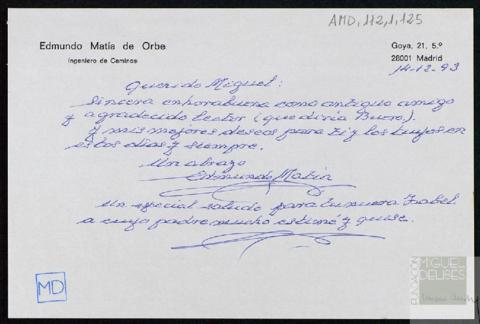 AMD, 112, 1, 125
Edmundo Matía de Orbe
Ingeniero de Caminos
Goya, 21, 5.º
28001 Madrid
14-12-93
Querido Miguel:
Sincera enhorabuena como antiguo amigo
y agradecido lector (que diría Buero).
Y mis mejores deseos para ti y los tuyos en
estos días y siempre.
Un abrazo
Edmundo Matía
Un especial saludo para tu nuera Isabel
a cuyo padre mucho estimé y quise.
MD
FUNDACIÓN
MIGUEL
DELIBES